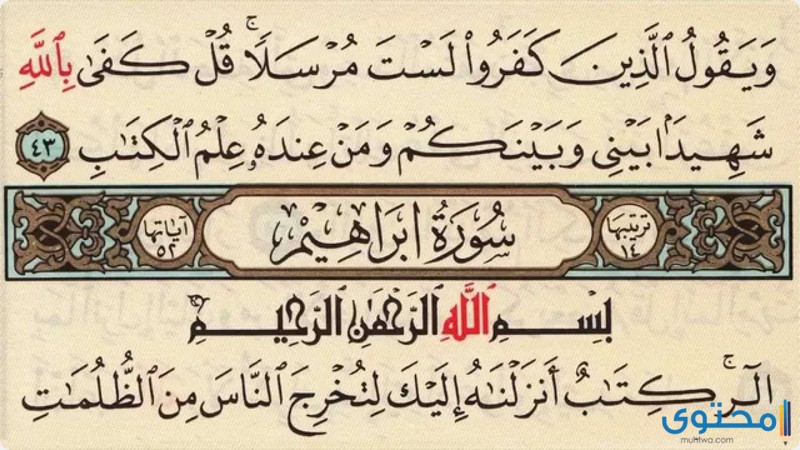 وَيَقُولُ ٱلَّذِينَ كَفَرُوا۟ لَسْتَ مُرْسَلًا ۚ قُلْ كَفَىٰ بِٱللَّهِ
شَهِيدًۢا بَيْنِي وَبَيْنَكُمْ وَمَنْ عِندَهُۥ عِلْمُ ٱلْكِتَٰبِ ٤٣
ترتيبها ١٤ سُورَةُ إِبْرَاهِيمَ آياتها ٥٢
بِسْمِ ٱللَّهِ ٱلرَّحْمَٰنِ ٱلرَّحِيمِ
الٓر ۚ كِتَٰبٌ أَنزَلْنَٰهُ إِلَيْكَ لِتُخْرِجَ ٱلنَّاسَ مِنَ ٱلظُّلُمَٰتِ
محتوى
muhtwa.com